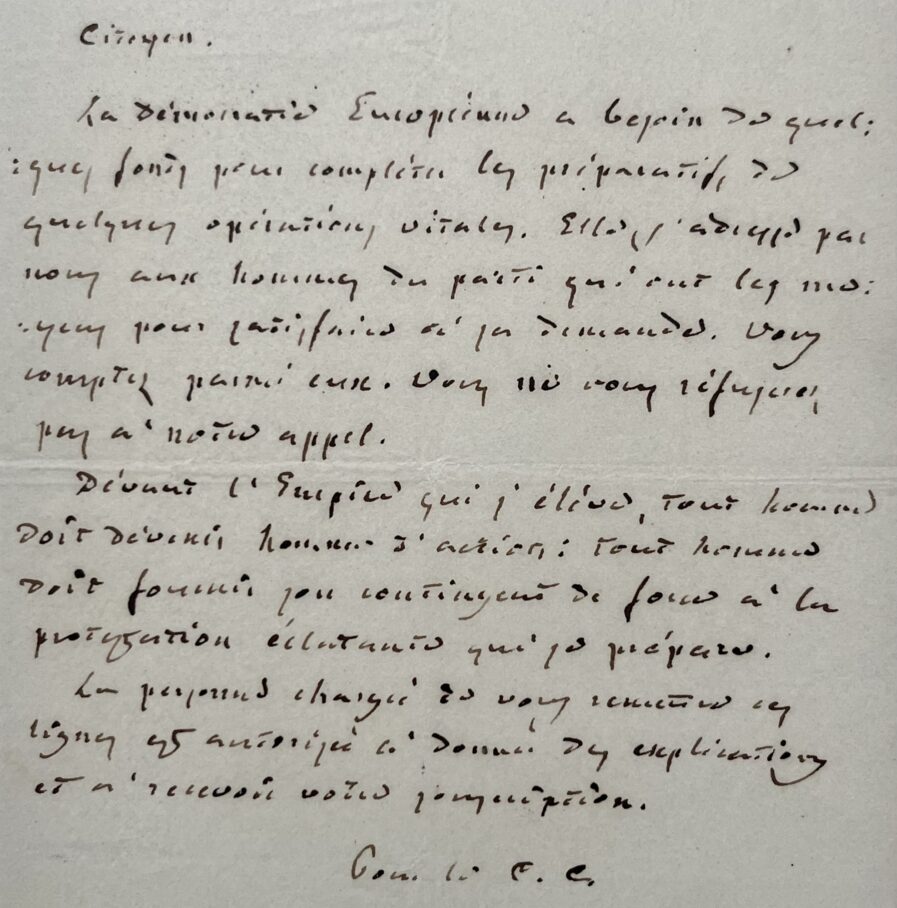 Citoyen.
La Démocratie Européenne a besoin de quel:
:ques fonds pour compléter les préparatifs de
quelques opérations vitales. Elle s'adresse par
nous aux hommes du parti qui ont les mo:
:yens pour satisfaire à sa demande. Vous
comptez parmi eux. Vous ne vous refuserez
pas à notre appel.
Dévant l'Empire qui s'élève, tout homme
doit dévenir homme d'action: tout homme
doit fournir son contingent de force à la
protestation éclatante qui se prépare.
La personne chargée de vous remettre ces
lignes est autorisée à donner des explications
et à recevoir votre souscription.
Pour le C. C.